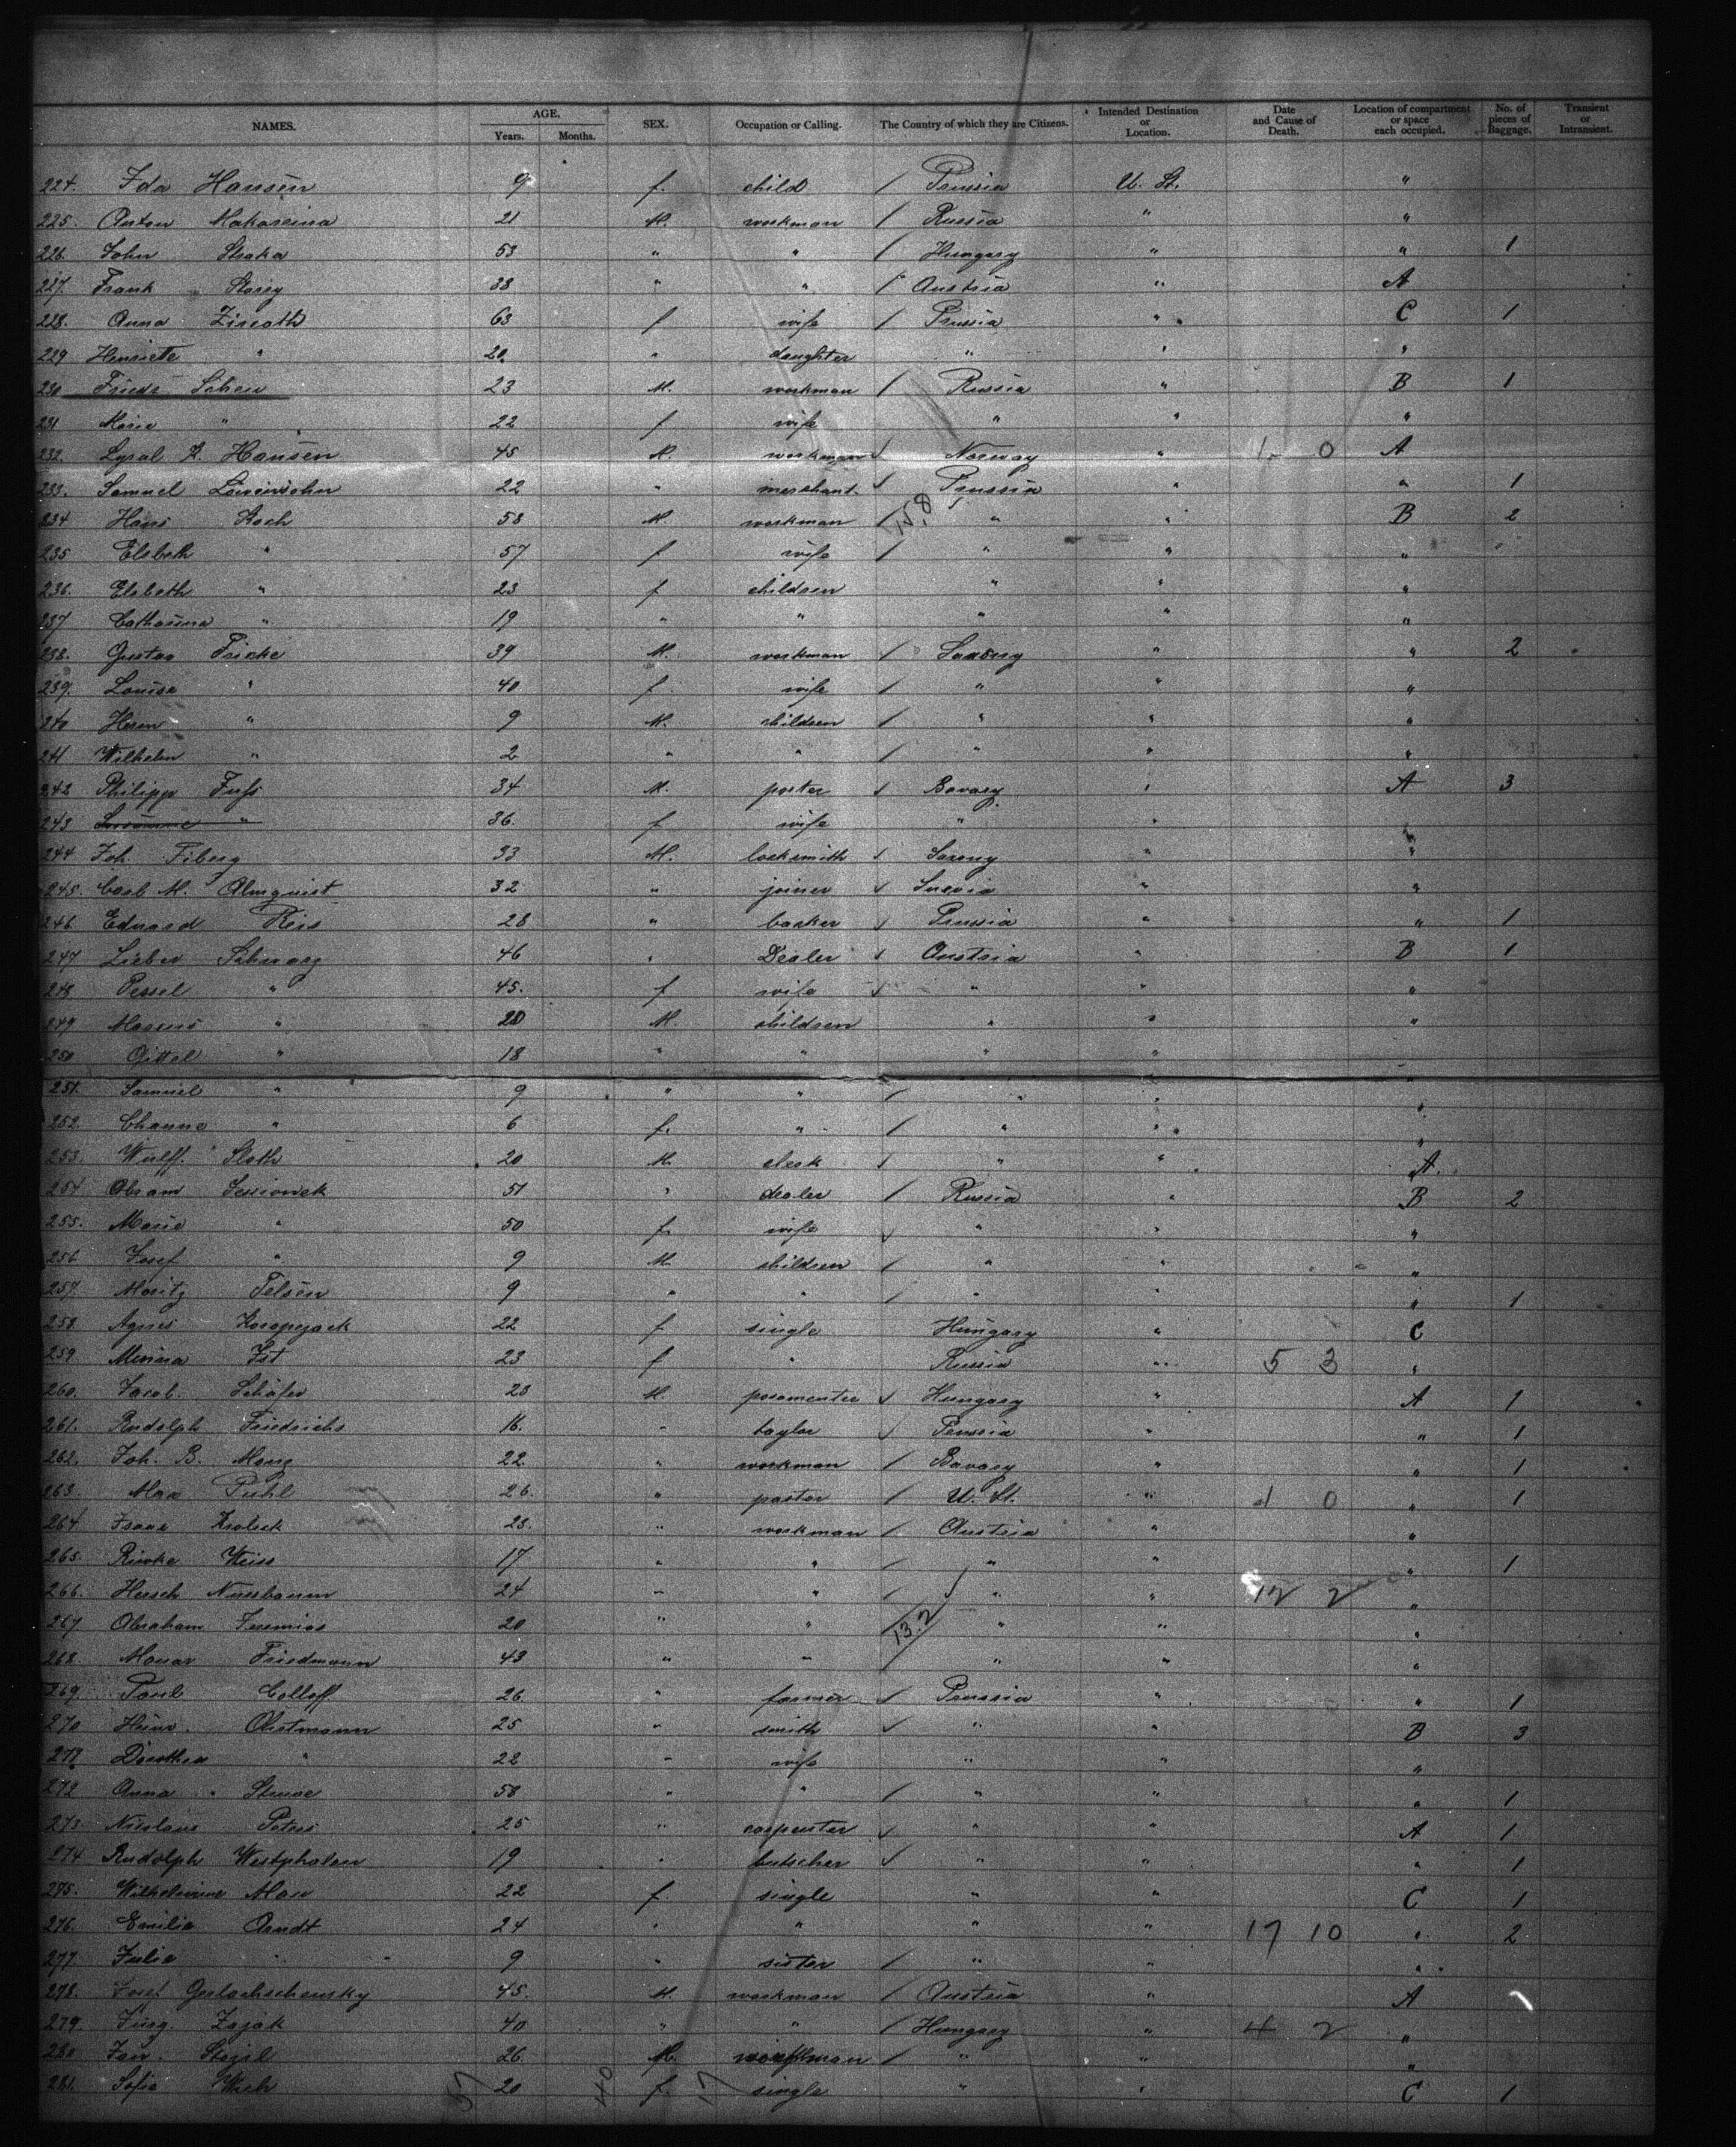 NAMES. AGE. Years. Months. SEX. Occupation or Calling. The Country of which they are Citizens. Intended Destination or Location. Date and Cause of Death. Location of compartment or space each occupied. No. of pieces of Baggage. Transient or Intransient.
224. Ida Hansen 9 f. child / Prussia U. St. "
225. Anton 21 M. workman / Russia " "
226. John Straka 53 " " / Hungary " " 1
227. Frank 38 " " / Austria " A
228. Anna 63 f wife / Prussia " C 1
229 Henriette " 20. " daughter " " "
230 Schen 23 M. workman / Russia " B 1
231 Marie " 22 f wife " " "
232. Hansen 45 M. workman √ Norway " 1 0 A
233. Samuel 22 " merchant √ Prussia " " 1
234 Hans Koch 58 M. workman / 15.8 " " B 2
235 Elsbeth " 57 f wife / " " "
236. Elsbeth " 23 f children " " "
237 Catharina " 19 " " " " "
238. Gustav Fricke 39 M. workman / " " 2
239. Louise " 40 f. wife / " " "
240 Herm " 9 M. children / " " "
241 Wilhelm " 2 " " / " " "
242 Philipp Fuß 34 M. porter √ Bavary " A 3
243 " 36. f wife " " "
244 Joh. Fiberg 33 M. locksmith √ Saxony " "
245. Carl M. Almquist 32 " joiner √ Suecia " "
246 Eduard Reis 28 " backer √ Prussia " " 1
247 Lieber Schwarz 46 " Dealer √ Austria " B 1
248 Pessel " 45. f wife √ " " "
249 Marcus " 20 M children " " "
250 Gittel " 18 " " " " "
251. Samuel " 9 " " / " " "
252. Channe " 6 f. " / " " "
253. Wulff Sloth 20 M. clerk √ " " A.
254 Abram 51 " dealer / Russia " B 2
255. Marie " 50 f. wife √ " " "
256 Josef " 9 M. children / " " "
257. Moritz Felsen 9 " " / " " " 1
258. Agnes 22 f single Hungary " C
259 Minna 23 f " Russia " 5 3 "
260. Jacob. Schäfer 28 M. posamentie √ Hungary " A 1
261. Rudolph Friedrichs 16. " taylor √ Prussia " " 1
262. Joh. B. Manz 22 " workman / Bavary " " 1
263. Max Puhl 26. " pastor / U. St. " 1 0 " 1
264. 28. " workman / Austria " "
265. Rivke Weiss 17 " " / " " " 1
266. Hersch Nussbaum 24 " " / " " 12 2 "
267. Abraham Jeremias 20 " " 13.2 " " "
268. Friedmann 43 " " / " " "
269. Paul Colloff 26. " farmer √ Prussia " " 1
270 Heinr. 25 " smith √ " " B 3
271 Dorothea " 22 " wife " " "
272 Anna Struve 58 " " / " " " 1
273. Nicolaus Peters 25 " carpenter √ " " A 1
274 Rudolph Westphalen 19 " butscher √ " " " 1
275. Wilhelmine Mau 22 f single " " C 1
276. Emilie Arndt 24 " " " " 17 10 " 2
277. Julie " 9 " sister / " " "
278. Josef 45. M. workman / Austria " A
279. Jurg. Zajak 40 " " / Hungary " 4 2 "
280 Jan. 26. M. workman / " " "
281. Sofie 20 f. single " " C 1
57 40 17